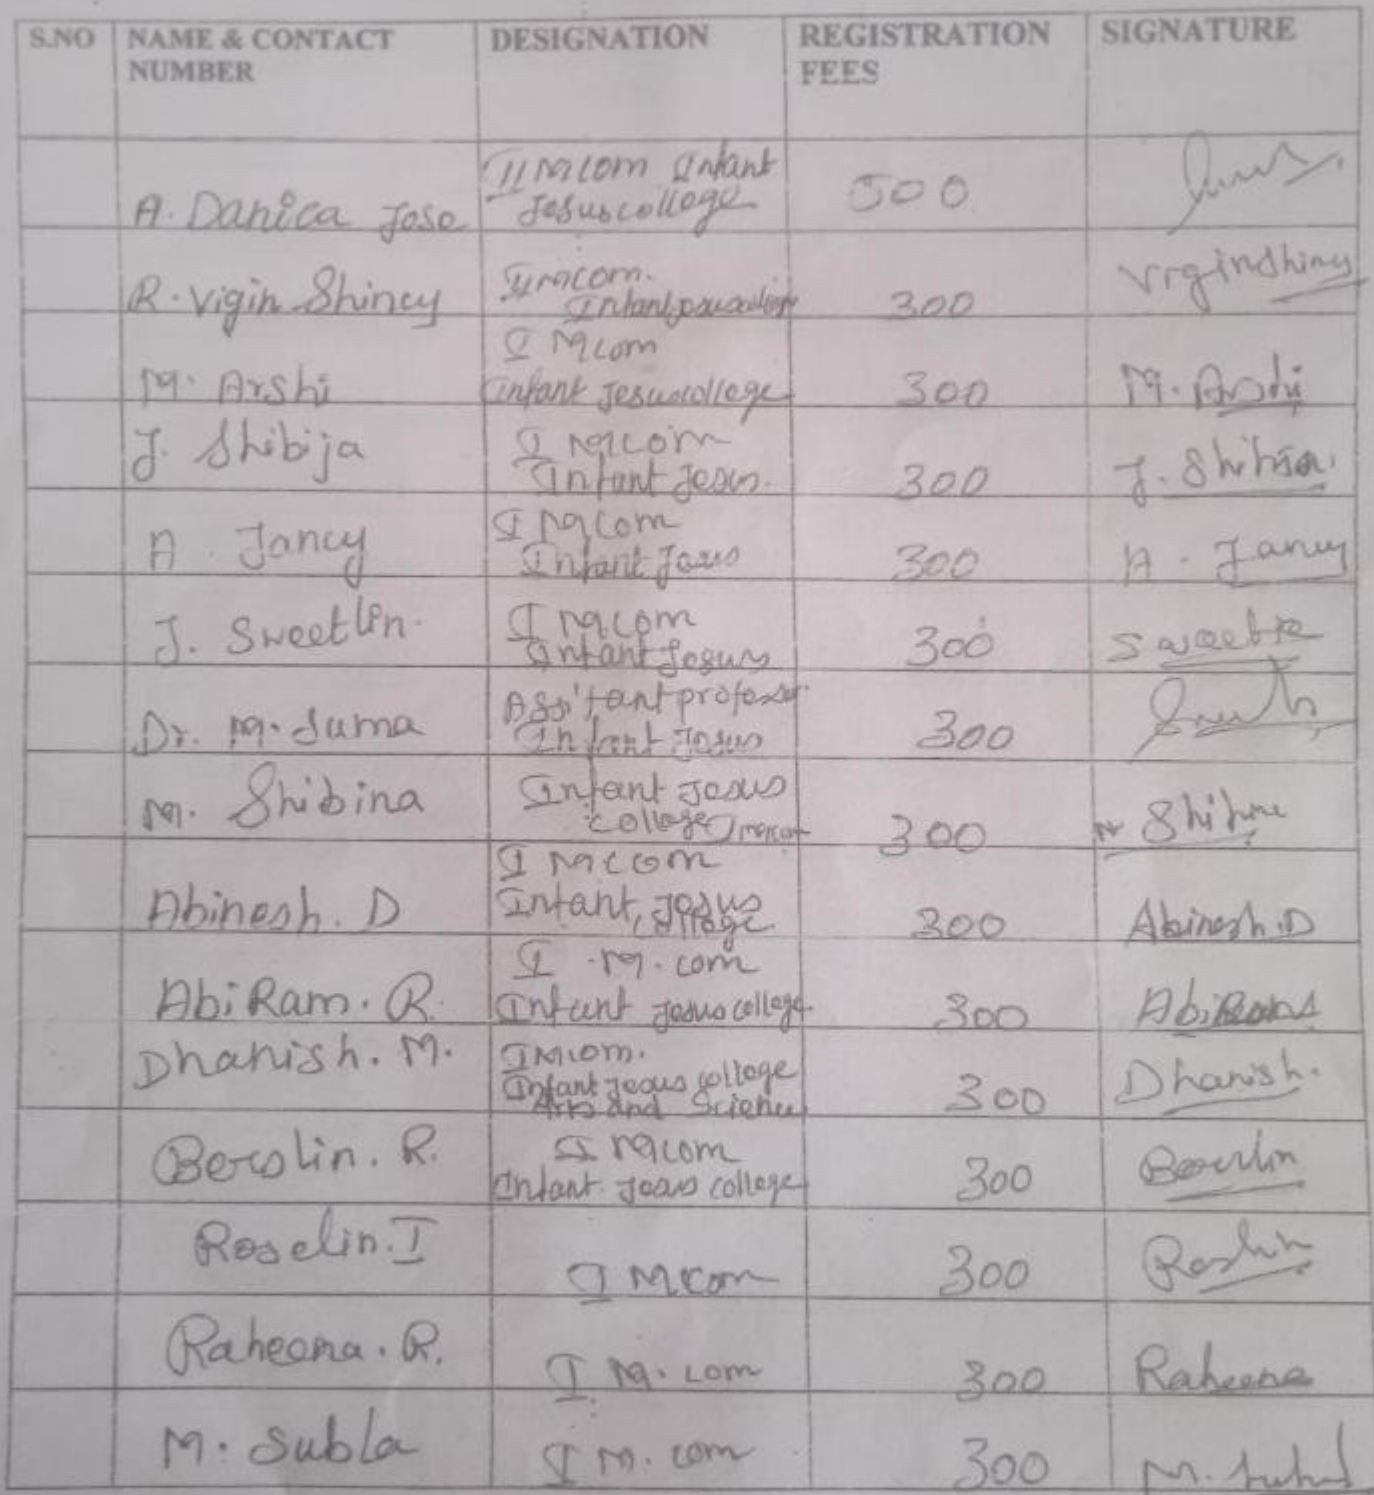 S.NO NAME & CONTACT NUMBER DESIGNATION REGISTRATION FEES SIGNATURE
A. Danica Jose II M com Infant Jesus college 500
R. Vigin Shincy II M com. Infant 300 Virginshincy
M. Arshi I M com Infant Jesus college 300 M. Arshi
J. Shibija I M com Infant Jesus. 300 J. Shibija
A. Jancy I M com Infant Jesus 300 A. Jancy
J. Sweetlin. I M com Infant Jesus 300
Dr. M. Suma Assitant professor Infant Jesus 300
M. Shibina Infant Jesus college I mcom 300
Abinesh. D I M com Infant, Jesus college 300 Abinesh.D
Abi Ram. R. I .M. com Infant Jesus college. 300
Dhanish. M. I M com. Infant Jesus college Arts and Science 300 Dhanish.
Berslin. R. I M com Infant Jesus college 300
Roselin. I I M com 300
Raheena. R. I M. com 300 Raheena
M. Subla I M. com 300